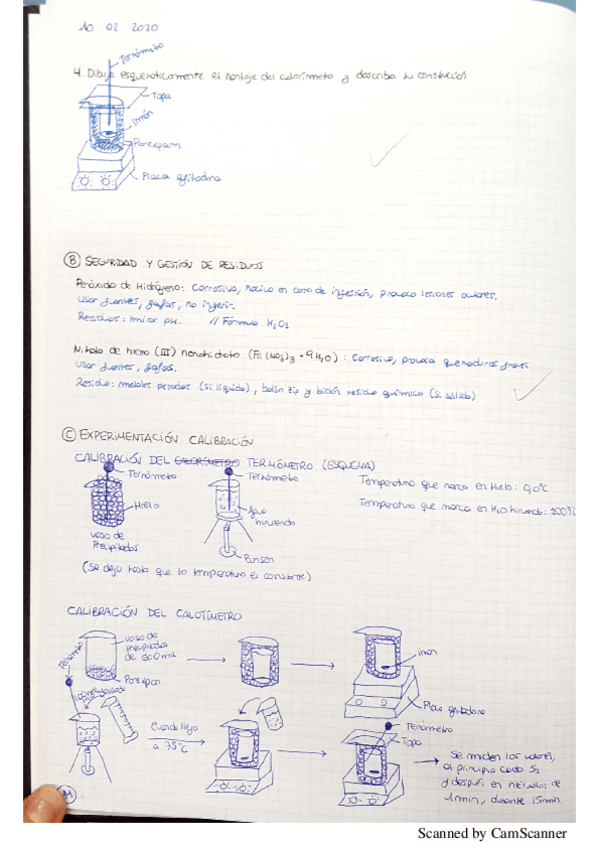 10 02 2020
Termómetro
4. Dibuja esquemáticamente el montaje del calorímetro y describa su construcción
Tapa
imán
Porexpam
Placa agitadora
B SEGURIDAD Y GESTIÓN DE RESIDUOS
Peróxido de Hidrógeno: Corrosivo, nocivo en caso de ingestión, provoca lesiones oculares.
Usar guantes, gafas, no ingerir.
Residuos: mirar pH. // Fórmula H2O2
Nitrato de hierro (III) nonahidrato (Fe(NO3)3 · 9H2O): Corrosivo, provoca quemaduras graves.
Usar guantes, gafas.
Residuo: metales pesados (si líquido), bolsa zip y bidón residuo químico (si sólido)
C EXPERIMENTACIÓN CALIBRACIÓN
CALIBRACIÓN DEL CALORÍMETRO TERMÓMETRO (ESQUEMA)
Termómetro
Termómetro
Temperatura que marca en Hielo: 0,0°C
Hielo
Agua
hirviendo
Temperatura que marca en H2O hirviendo: 100
vaso de
Precipitados
Bunsen
(Se deja hasta que la temperatura es constante)
CALIBRACIÓN DEL CALORÍMETRO
vaso de
precipitados
de 600 ml
Porexpan
Termómetro
imán
Placa agitadora
Cuando llega
a 75°C
Termómetro
Tapa
Se miden los valores,
al principio cada 5s
y después en intervalos de
1 min, durante 15 min.
Scanned by CamScanner